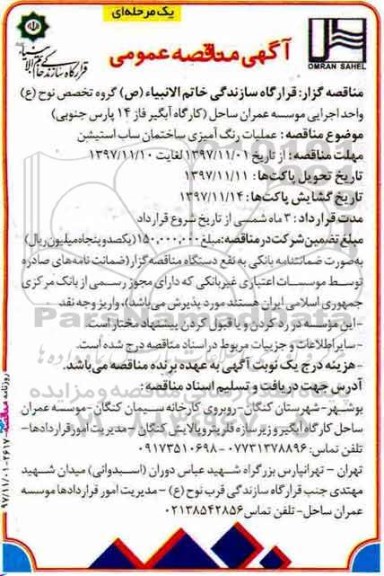 یک مرحله‌ای
قرارگاه سازندگی خاتم الانبیاء
OMRAN SAHEL
آگهی مناقصه عمومی
مناقصه گزار: قرارگاه سازندگی خاتم الانبیاء (ص) گروه تخصص نوح (ع)
واحد اجرایی موسسه عمران ساحل (کارگاه آبگیر فاز ۱۴ پارس جنوبی)
موضوع مناقصه : عملیات رنگ آمیزی ساختمان ساب استیشن
مهلت مناقصه : از تاریخ ۱۳۹۷/۱۱/۰۱ لغایت ۱۳۹۷/۱۱/۱۰
تاریخ تحویل پاکت‌ها : ۱۳۹۷/۱۱/۱۱
تاریخ گشایش پاکت‌ها : ۱۳۹۷/۱۱/۱۴
مدت قرار داد : ۳ ماه شمسی از تاریخ شروع قرارداد
مبلغ تضمین شرکت در مناقصه: مبلغ ۱۵۰,۰۰۰,۰۰۰ (یکصد و پنجاه میلیون ریال)
به‌صورت ضمانتنامه بانکی به نفع دستگاه مناقصه گزار (ضمانت نامه‌های صادره
توسط موسسات اعتباری غیربانکی که دارای مجوز رسمی از بانک مرکزی
جمهوری اسلامی ایران هستند مورد پذیرش می‌باشد)، واریز وجه نقد
-این مؤسسه در رد کردن و یا قبول کردن پیشنهاد مختار است.
-سایر اطلاعات و جزییات مربوط در اسناد مناقصه درج شده است.
-هزینه درج یک نوبت آگهی به عهده برنده مناقصه می‌باشد.
آدرس جهت دریافت و تسلیم اسناد مناقصه:
بوشهر - شهرستان کنگان - روبروی کارخانه سیمان کنگان - موسسه عمران
ساحل کارگاه آبگیر و زیرسازه فلرپترو پالایش کنگان - مدیریت امور قراردادها -
تلفن تماس ۰۷۷۳۱۳۷۸۸۹۶ - ۰۹۱۷۳۵۱۰۶۹۸
تهران - تهرانپارس بزرگراه شهید عباس دوران (اسبدوانی) میدان شهید
مهتدی جنب قرارگاه سازندگی قرب نوح (ع) - مدیریت امور قراردادها موسسه
عمران ساحل - تلفن تماس ۰۲۱۳۸۵۴۲۸۵۶
روزنامه مناقصه ۳۶۱۷ - ۹۷/۱۱/۰۱
ParsNamadData